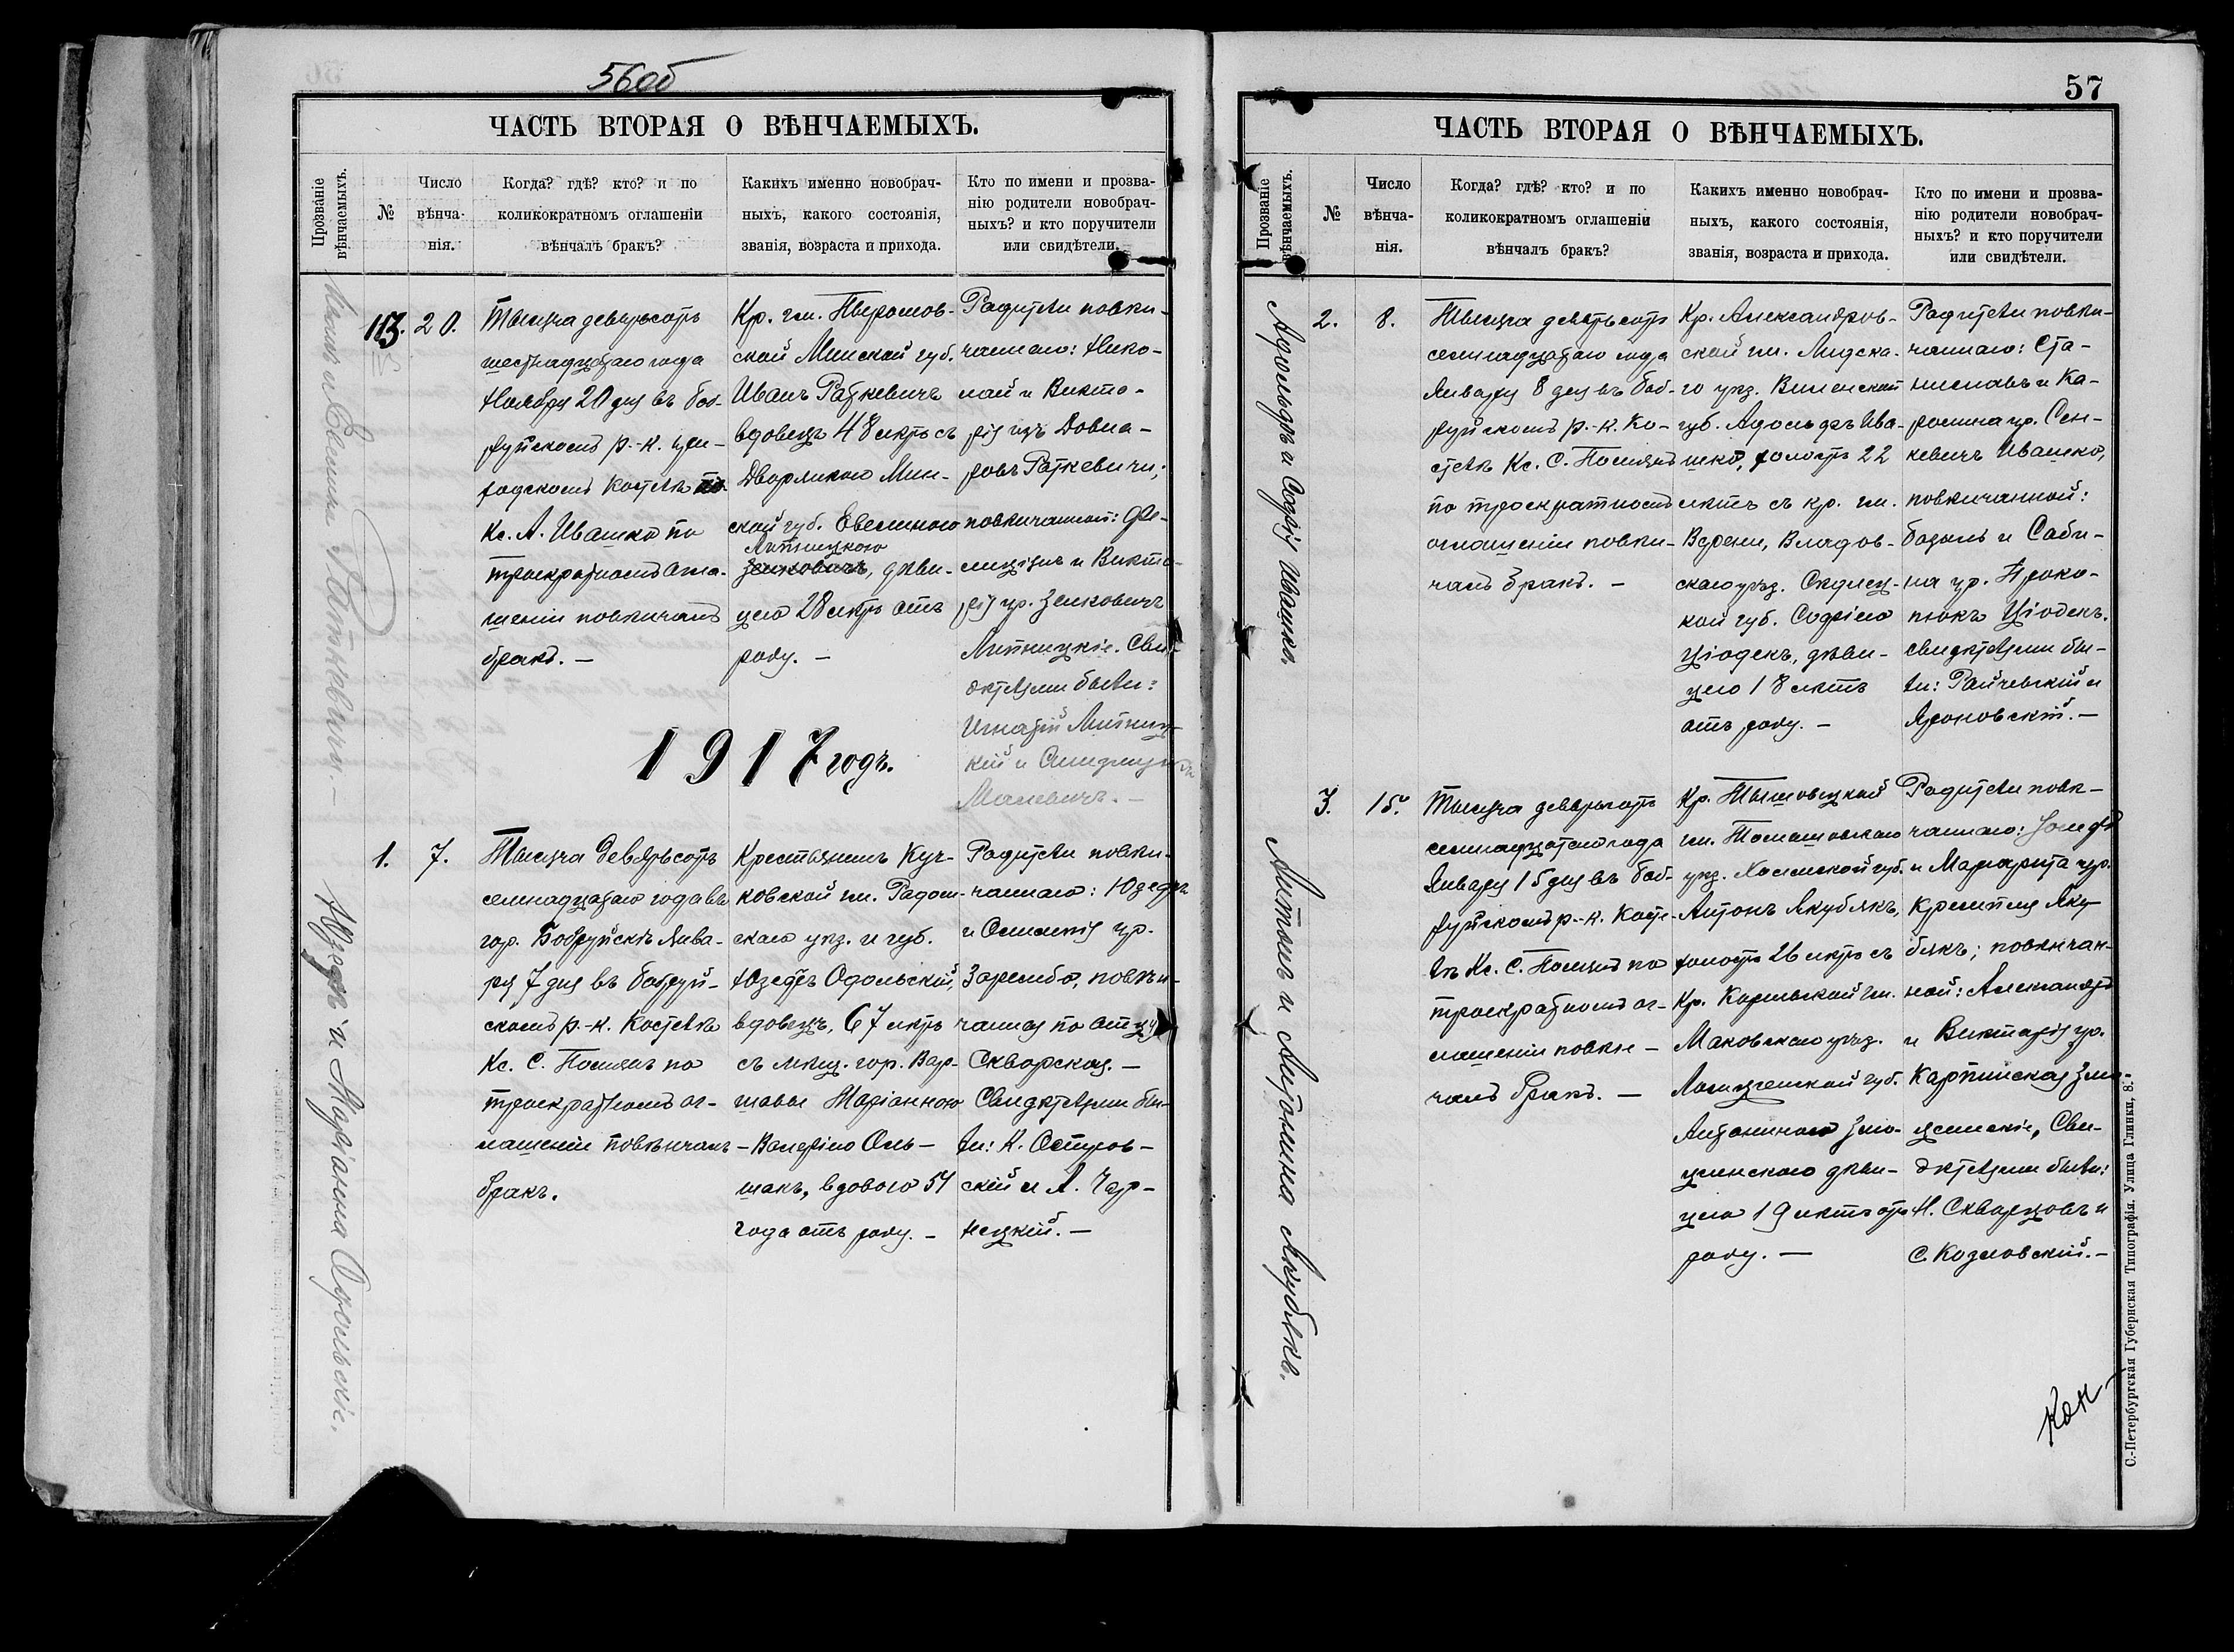 56об
ЧАСТЬ ВТОРАЯ О ВѢНЧАЕМЫХЪ.
Прозваніе
вѣнчаемыхъ.
№
Число
вѣнча-
нія.
Когда? гдѣ? кто? и по
коликократномъ оглашеніи
вѣнчалъ бракъ?
Какихъ именно новобрач-
ныхъ, какого состоянія,
званія, возраста и прихода.
Кто по имени и прозва-
нію родители новобрач-
ныхъ? и кто поручители
или свидѣтели.
20.
Тысяча девятьсотъ
шестнадцатаго года
Ноября 20 дня въ Боб-
руйскомъ р.-к. при-
ходскомъ Костелѣ
Кс. А. Ивашко по
троекратномъ огла-
шеніи повѣнчанъ
бракъ. —
Кр. гм.
ской Минской губ.
Иванъ Раткевичъ
вдовецъ 48 лѣтъ съ
Дворянкою Мин-
ской губ. Евелиною
Литницкою
Зенковичъ, дѣви-
цею 28 лѣтъ отъ
роду. —
Родители повѣн-
чаннаго: Нико-
лай и Викто-
рія изъ Довна-
ровъ Раткевичи;
повѣнчанной: Фе-
лиціанъ и Викто-
рія ур. Зенковичъ
Литницкіе. Сви-
дѣтелями были:
Игнатій Литниц-
кій и
Малевичъ. —
1917 годъ.
Юзефъ и Маріанна Одольскіе.
1.
7.
Тысяча девятьсотъ
семнадцатаго года въ
гор. Бобруйскѣ Янва-
ря 7 дня въ бобруй-
скомъ р.-к. Костелѣ
Кс. С. Помянъ по
троекратномъ ог-
лашеніи повѣнчанъ
бракъ.
Крестьянинъ Куч-
ковской гм. Радом-
скаго уѣз. и губ.
Юзефъ Одольскій,
вдовецъ, 67 лѣтъ
съ мѣщ. гор. Вар-
шавы Маріанною
— Валеріею Оль —
шакъ, вдовою 54
года отъ роду. —
Родители повѣн-
чаннаго: Юзефъ
и ур.
Заремба, повѣн-
чанная по отцу
Скворская. —
Свидѣтелями бы-
ли: К. Остров-
скій и А. Чар-
нецкій. —
57
ЧАСТЬ ВТОРАЯ О ВѢНЧАЕМЫХЪ.
Прозваніе
вѣнчаемыхъ.
№
Число
вѣнча-
нія.
Когда? гдѣ? кто? и по
коликократномъ оглашеніи
вѣнчалъ бракъ?
Какихъ именно новобрач-
ныхъ, какого состоянія,
званія, возраста и прихода.
Кто по имени и прозва-
нію родители новобрач-
ныхъ? и кто поручители
или свидѣтели.
Адольфъ и Софія Ивашко.
2.
8.
Тысяча девятьсотъ
семнадцатаго года
Января 8 дня въ Боб-
руйскомъ р.-к. Ко-
стелѣ Кс. С. Помянъ
по троекратномъ
оглашеніи повѣн-
чанъ бракъ. —
Кр. Александров-
ской гм. Лидска-
го уѣз. Виленской
губ. Адольфъ Ива-
шко, холостъ 22
лѣтъ съ кр. гм.
Верени, Владов-
скаго уѣз. Сѣдлец-
кой губ. Софіею
Цiодекъ, дѣви-
цею 18 лѣтъ
отъ роду. —
Родители повѣн-
чаннаго: Ста-
ниславъ и Ка-
ролина ур. Сен-
кевичъ Ивашко,
повѣнчанной:
и Саби-
на ур. Проко-
пюкъ Цiодекъ.
Свидѣтелями бы-
ли: Райчевскій и
Яроновскій. —
Антонъ и Антонина Якубякъ.
3.
15.
Тысяча девятьсотъ
семнадцатаго года
Января 15 дня въ Боб-
руйскомъ р.-к. Косте-
лѣ Кс. С. Помянъ по
троекратномъ ог-
лашеніи повѣн —
чанъ бракъ. —
Кр. Тышовецкой
гм. Томашовскаго
уѣз. Холмской губ.
Антонъ Якубякъ,
холостъ 26 лѣтъ съ
Кр. гм.
Маковскаго уѣз.
Ломжинской губ.
Антониною
дѣви-
цею 19 лѣтъ отъ
роду. —
Родители повѣн-
чаннаго: Іосифъ
и Маргарита ур.
Яку-
бякъ; повѣнчан-
ной: Александръ
и Викторія ур.
Карпинская
Сви-
дѣтелями были:
Н. Скварцовъ и
С. Козловскій. —
С.-Петербургская Губернская Типографія. Улица Глинки, 8.